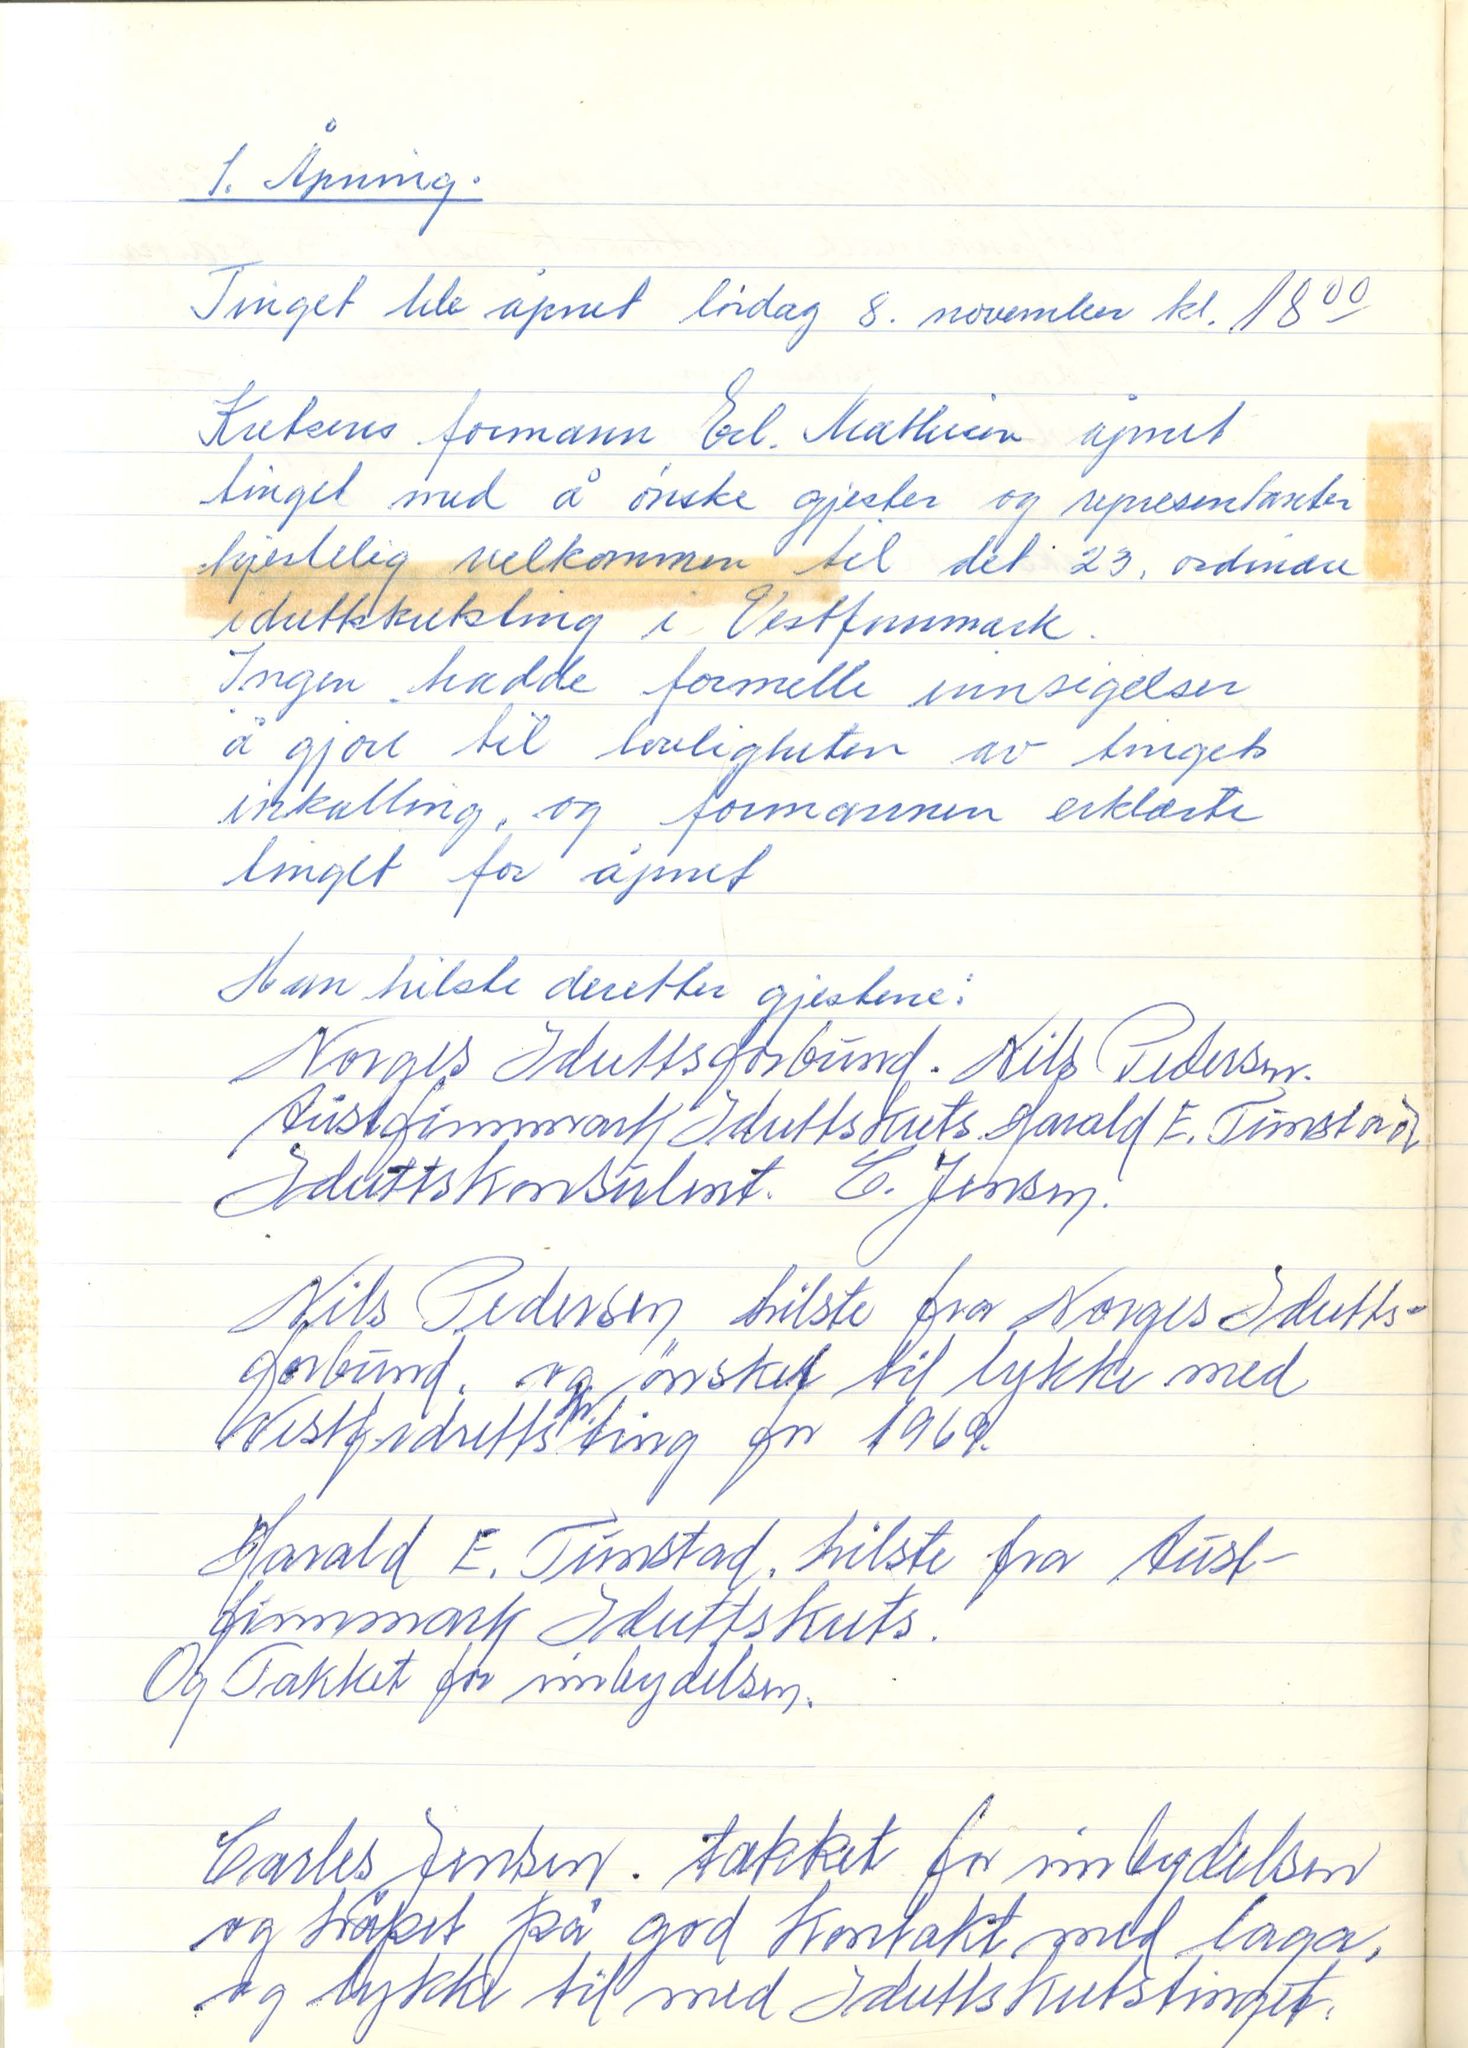 1. Åpning.
Tinget ble åpnet lördag 8. november kl. 18 00
Kretsens formann Erl. Mathisen åpnet
tinget med å önske gjester og representanter
hjertelig velkommen til det 23. ordinære
idrettskretsting i Vestfinnmark.
Ingen hadde formelle innsigelser
å gjöre til lovligheten av tingets
inkalling, og formannen erklærte
tinget for åpnet
Han hilste deretter gjestene:
Norges Idrettsforbund. Nils Pedersen.
Austfinnmark Idrettskrets. Harald E. Tunstad
Idrettskonsulent. C. Jensen.
Nils Pedersen hilste fra Norges Idretts-
forbund, og önsket til lykke med
idrettsting for 1969.
Harald E. Tunstad, hilste fra Aust-
finnmark Idrettskrets.
Og Takket for innbydelsen.
Carles Jensen. takket for innbydelsen
og håpet på god kontakt med laga,
og lykke til med Idrettskretstinget.